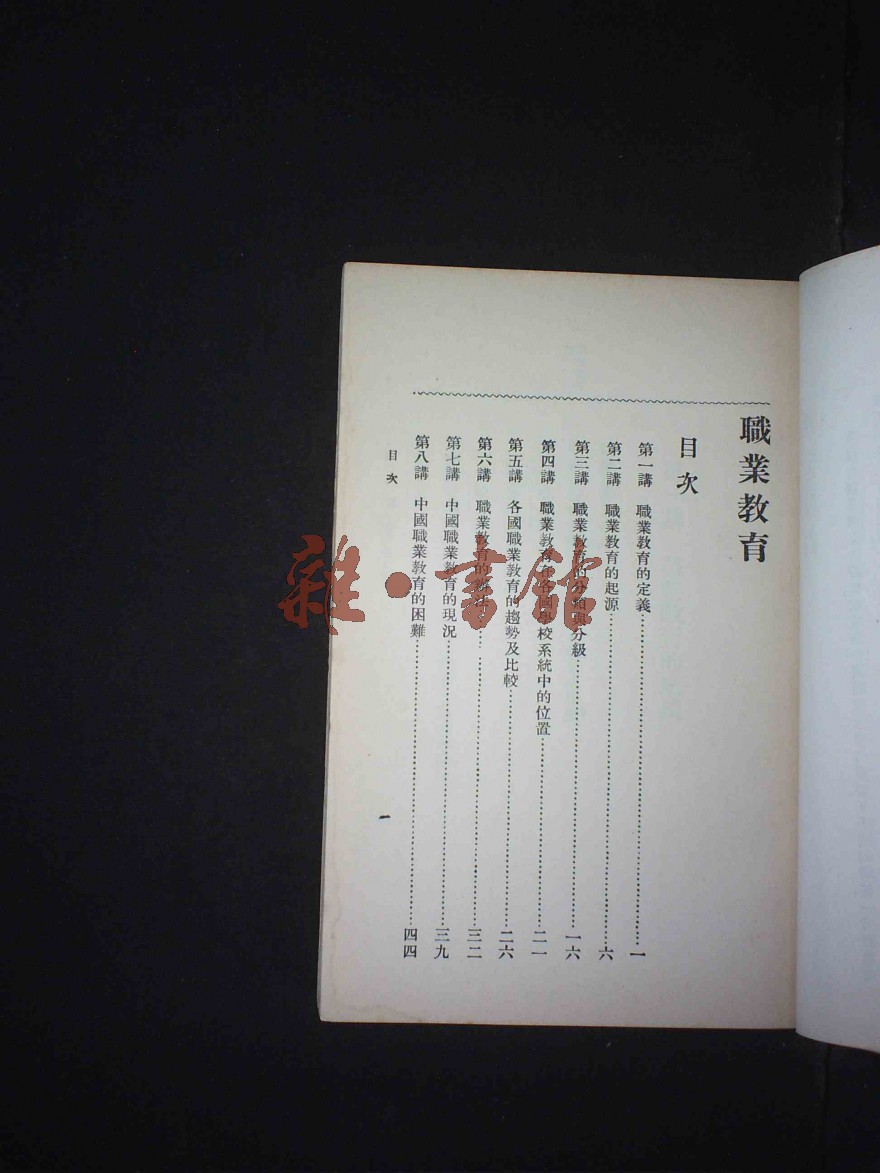 職業教育
目次
第一講 職業教育的定義……一
第二講 職業教育的起源……六
第三講 職業教育的分類與分級……一六
第四講 職業教育在各國學校系統中的位置……二一
第五講 各國職業教育的趨勢及比較……二六
第六講 職業教育的辦法……三二
第七講 中國職業教育的現況……三九
第八講 中國職業教育的困難……四四
目次
一
雜·書館